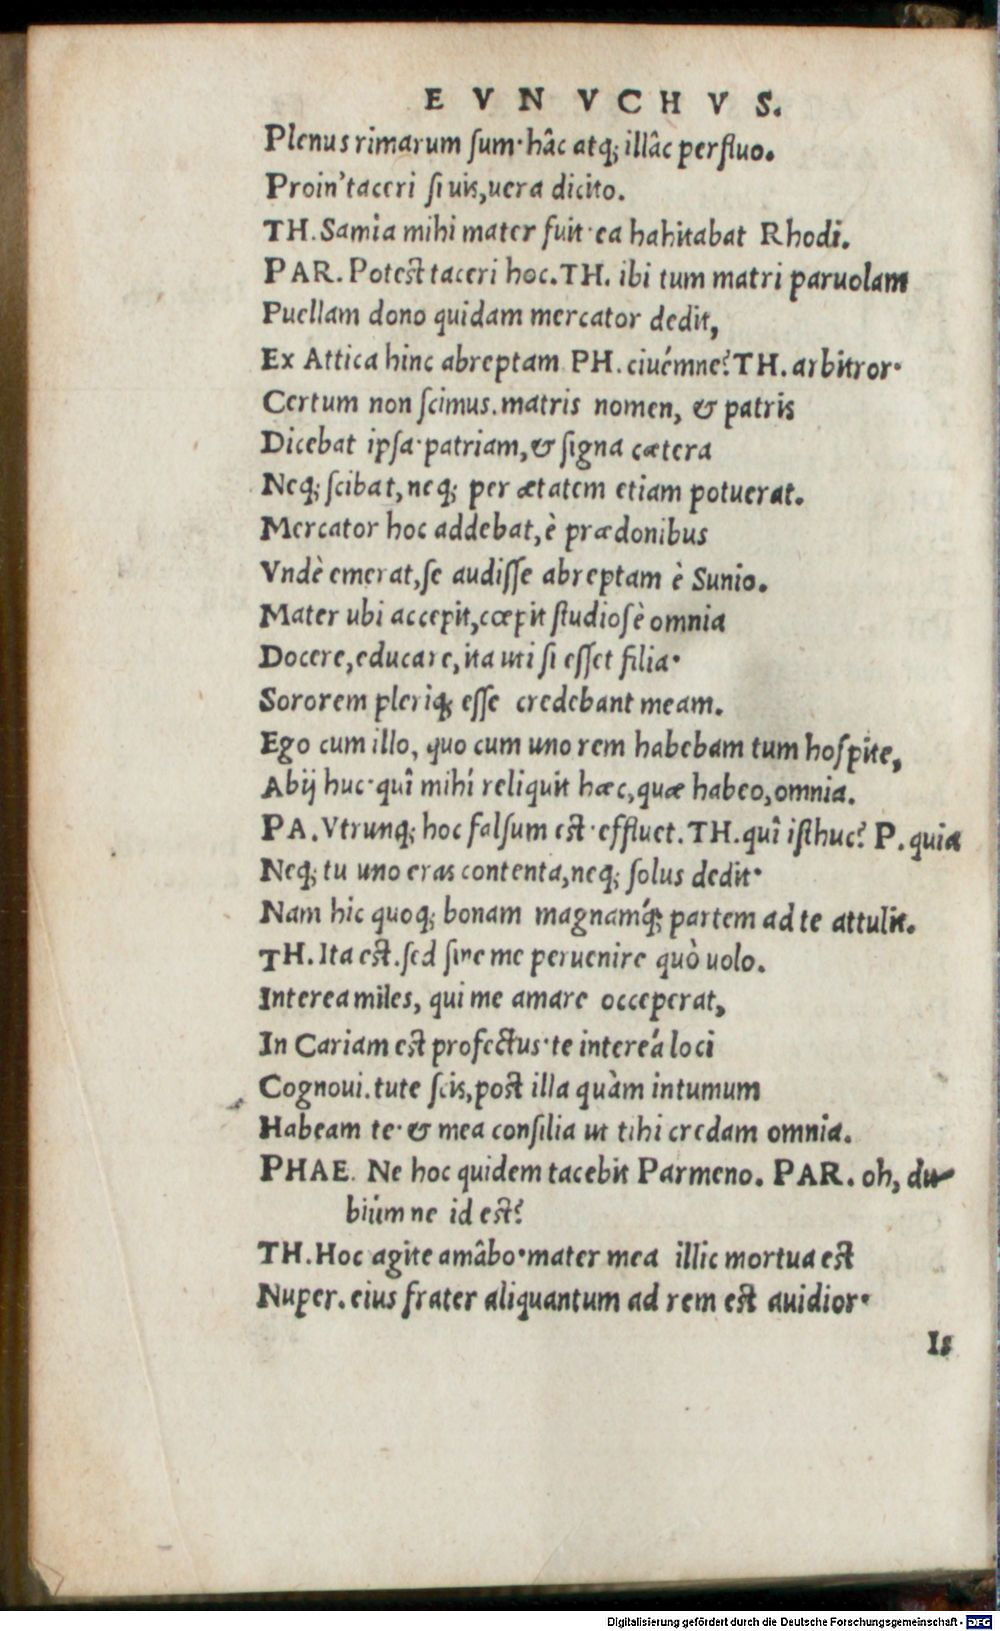 EVNVCHVS.
Plenus rimarum ſum· hâc atq; illâc perfluo.
Proin' taceri ſi uis, uera dicito.
TH. Samia mihi mater fuit· ea hahitabat Rhodi.
PAR. Poteſt taceri hoc. TH. ibi tum matri paruolam
Puellam dono quidam mercator dedit,
Ex Attica hinc abreptam PH. ciuémne? TH. arbitror·
Certum non ſcimus. matris nomen, & patris
Dicebat ipſa· patriam, & ſigna cætera
Neq; ſcibat, neq; per ætatem etiam potuerat.
Mercator hoc addebat, è prædonibus
Vndè emerat, ſe audiſſe abreptam è Sunio.
Mater ubi accepit, cœpit ſtudioſè omnia
Docere, educare, ita uti ſi eſſet filia·
Sororem pleriq; eſſe credebant meam.
Ego cum illo, quo cum uno rem habebam tum hoſpite,
Abij huc· quî mihi reliquit hæc, quæ habeo, omnia.
PA. Vtrunq; hoc falſum eſt· effluet. TH. quî iſthuc? P. quia
Neq; tu uno eras contenta, neq; ſolus dedit·
Nam hic quoq; bonam magnamq́; partem ad te attulit.
TH. Ita eſt. ſed ſine me peruenire quò uolo.
Interea miles, qui me amare occeperat,
In Cariam eſt profectus· te intereá loci
Cognoui. tute ſcis, poſt illa quàm intumum
Habeam te· & mea conſilia ut tihi credam omnia.
PHAE. Ne hoc quidem tacebit Parmeno. PAR. oh, du-
biúm ne id eſt?
TH. Hoc agite amâbo· mater mea illic mortua eſt
Nuper. eius frater aliquantum ad rem eſt auidior·
Is
Digitalisierung gefördert durch die Deutsche Forschungsgemeinschaft - DFG